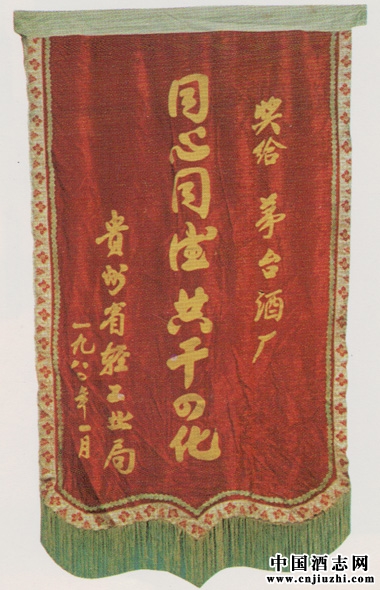 奖给 茅台酒厂
同心同德共干四化
贵州省轻工业局
一九八〇年一月
中国酒志网
www.cnjiuzhi.com